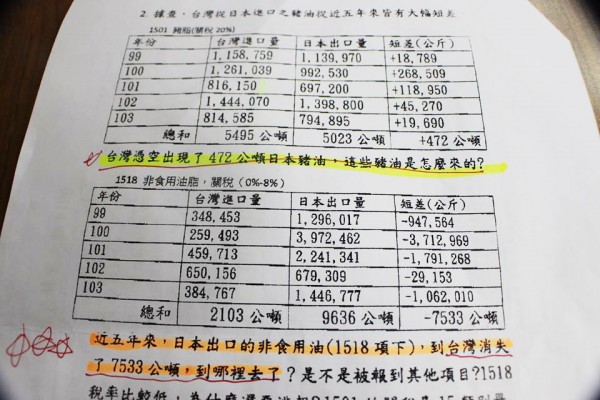 2. 據查，台灣從日本進口之豬油從近五年來皆有大幅短差
1501 豬脂(關稅 20%)
年份 台灣進口量 日本出口量 短差(公斤)
99 1,158,759 1,139,970 +18,789
100 1,261,039 992,530 +268,509
101 816,150 697,200 +118,950
102 1,444,070 1,398,800 +45,270
103 814,585 794,895 +19,690
總和 5495 公噸 5023 公噸 +472 公噸
台灣憑空出現了 472 公噸日本豬油，這些豬油是怎麼來的?
1518 非食用油脂，關稅（0%-8%）
年份 台灣進口量 日本出口量 短差(公斤)
99 348,453 1,296,017 -947,564
100 259,493 3,972,462 -3,712,969
101 459,713 2,241,341 -1,791,268
102 650,156 679,309 -29,153
103 384,767 1,446,777 -1,062,010
總和 2103 公噸 9636 公噸 -7533 公噸
近五年來，日本出口的非食用油(1518 項下)，到台灣消失
了 7533 公噸，到哪裡去了？是不是被報到其他項目?1518
稅率比較低，為什麼